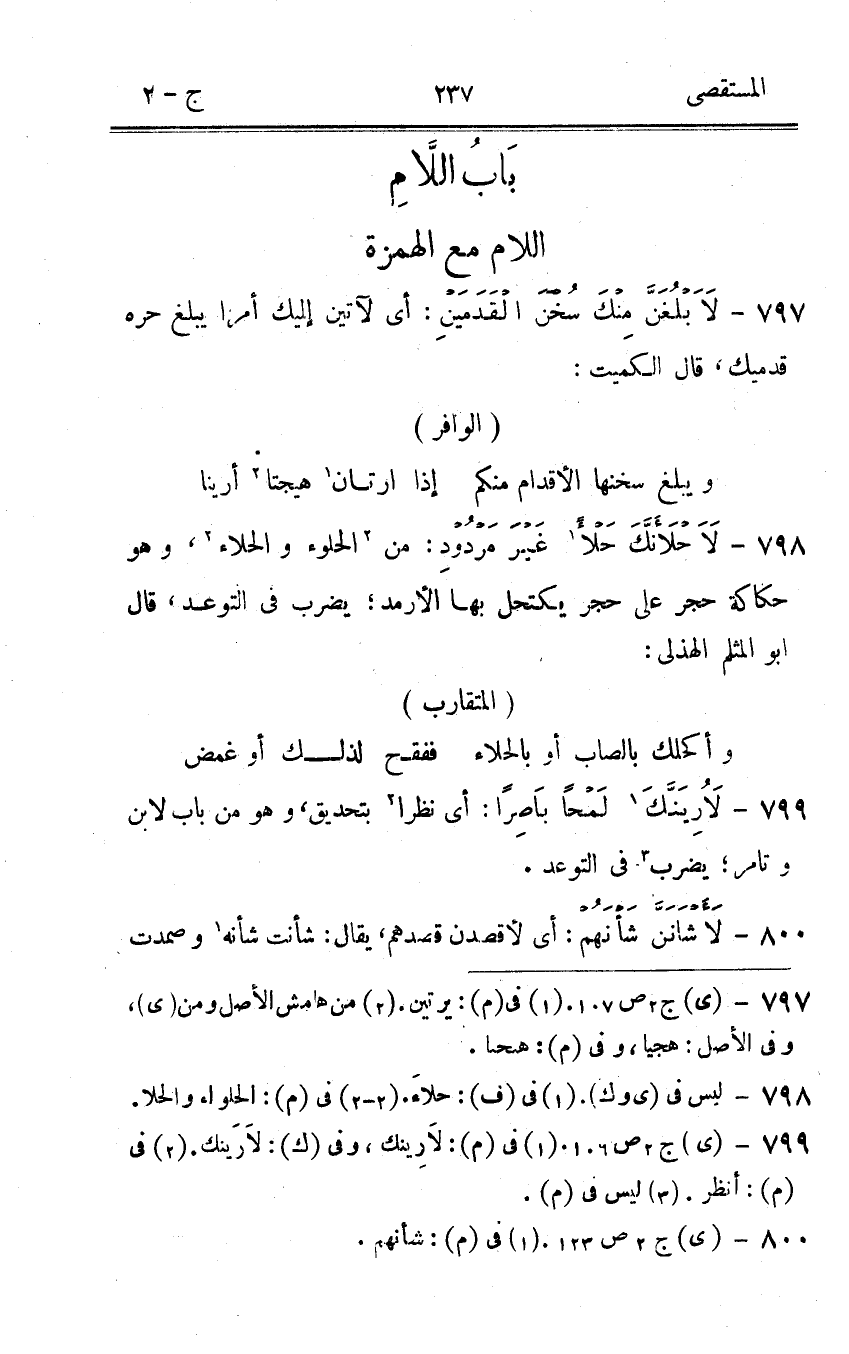 المستقصى ٢٣٧ ج - ٢
بَابُ اللَّامِ
اللام مع الهمزة
٧٩٧ - لَأَبْلُغَنَّ مِنْكَ سُخْنَ الْقَدَمَيْنِ : أى لآتين إليك أمرا يبلغ حره
قدميك، قال الكميت :
( الوافر )
و يبلغ سخنها الأقدام منكم إذا ارتـان١ هيجتا٢ أرينا
٧٩٨ - لَأَحْلَأَنَّكَ حَلْأً١ غَيْرَ مَرْدُودٍ : من ٢الحلوء و الحلاء٢، و هو
حكاكة حجر على حجر يكتحل بهـا الأرمد؛ يضرب فى التوعـد، قال
ابو المثلم الهذلى :
( المتقارب )
و أكحلك بالصاب أو بالحلاء ففقـح لذلـــك أو غمض
٧٩٩ - لَأُرِيَنَّكَ١ لَمْحًا بَاصِرًا : أى نظرا٢ بتحديق، و هو من باب لابن
و تامر؛ يضرب٣ فى التوعد .
٨٠٠ - لَأَشْأَنَنَّ شَأْنَهُمْ : أى لأقصدن قصدهم، يقال : شأنت شأنه١ و صمدت
٧٩٧ - (ى) ج ٢ ص ١٠٧. (١) فى (م) : يرتين. (٢) من هامش الأصل و من (ى)،
و فى الأصل : هجيا، و فى (م) : هىحىا .
٧٩٨ - ليس فى (ى و ك). (١) فى (ف) : حلاَء. (٢-٢) فى (م) : الحلواء والحلا.
٧٩٩ - (ى) ج ٢ ص ١٠٦. (١) فى (م) : لَأَرِينك، وفى (ك) : لَأَرَينك. (٢) فى
(م) : أنظر . (٣) ليس فى (م) .
٨٠٠ - (ى) ج ٢ ص ١٢٣. (١) فى (م) : شأنهم .